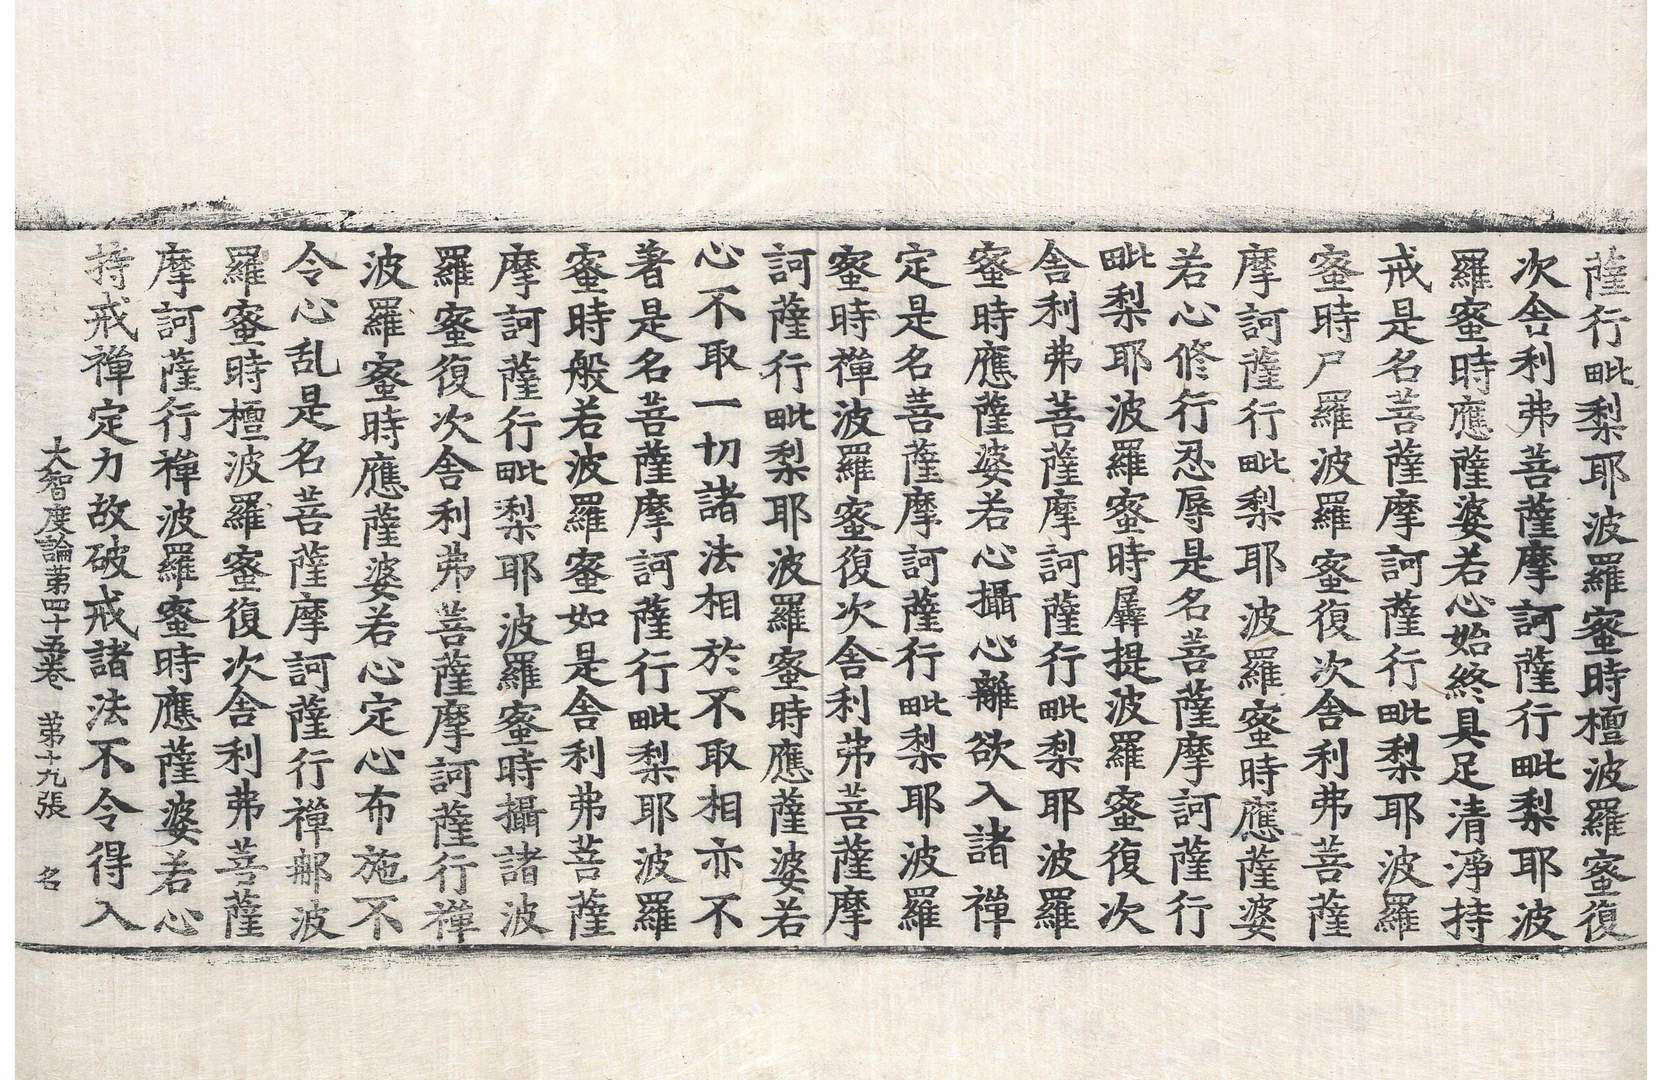 薩行毗梨耶波羅蜜時檀波羅蜜復
次舍利弗菩薩摩訶薩行毗梨耶波
羅蜜時應薩婆若心始終具足清淨持
戒是名菩薩摩訶薩行毗梨耶波羅
蜜時尸羅波羅蜜復次舍利弗菩薩
摩訶薩行毗梨耶波羅蜜時應薩婆
若心修行忍辱是名菩薩摩訶薩行
毗梨耶波羅蜜時羼提波羅蜜復次
舍利弗菩薩摩訶薩行毗梨耶波羅
蜜時應薩婆若心攝心離欲入諸禪
定是名菩薩摩訶薩行毗梨耶波羅
蜜時禪波羅蜜復次舍利弗菩薩摩
訶薩行毗梨耶波羅蜜時應薩婆若
心不取一切諸法相於不取相亦不
著是名菩薩摩訶薩行毗梨耶波羅
蜜時般若波羅蜜如是舍利弗菩薩
摩訶薩行毗梨耶波羅蜜時攝諸波
羅蜜復次舍利弗菩薩摩訶薩行禪
波羅蜜時應薩婆若心定心布施不
令心乱是名菩薩摩訶薩行禪那波
羅蜜時檀波羅蜜復次舍利弗菩薩
摩訶薩行禪波羅蜜時應薩婆若心
持戒禪定力故破戒諸法不令得入
大智度論第四十五卷 第十九張 名